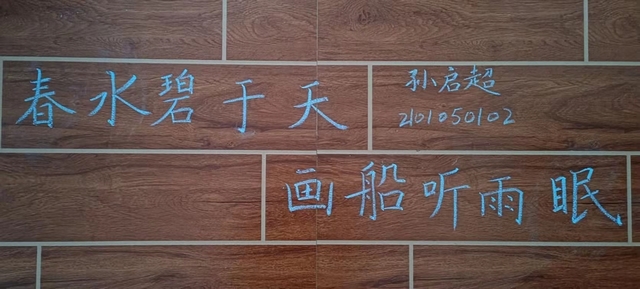 春水碧于天
孙启超
2101050102
画船听雨眠